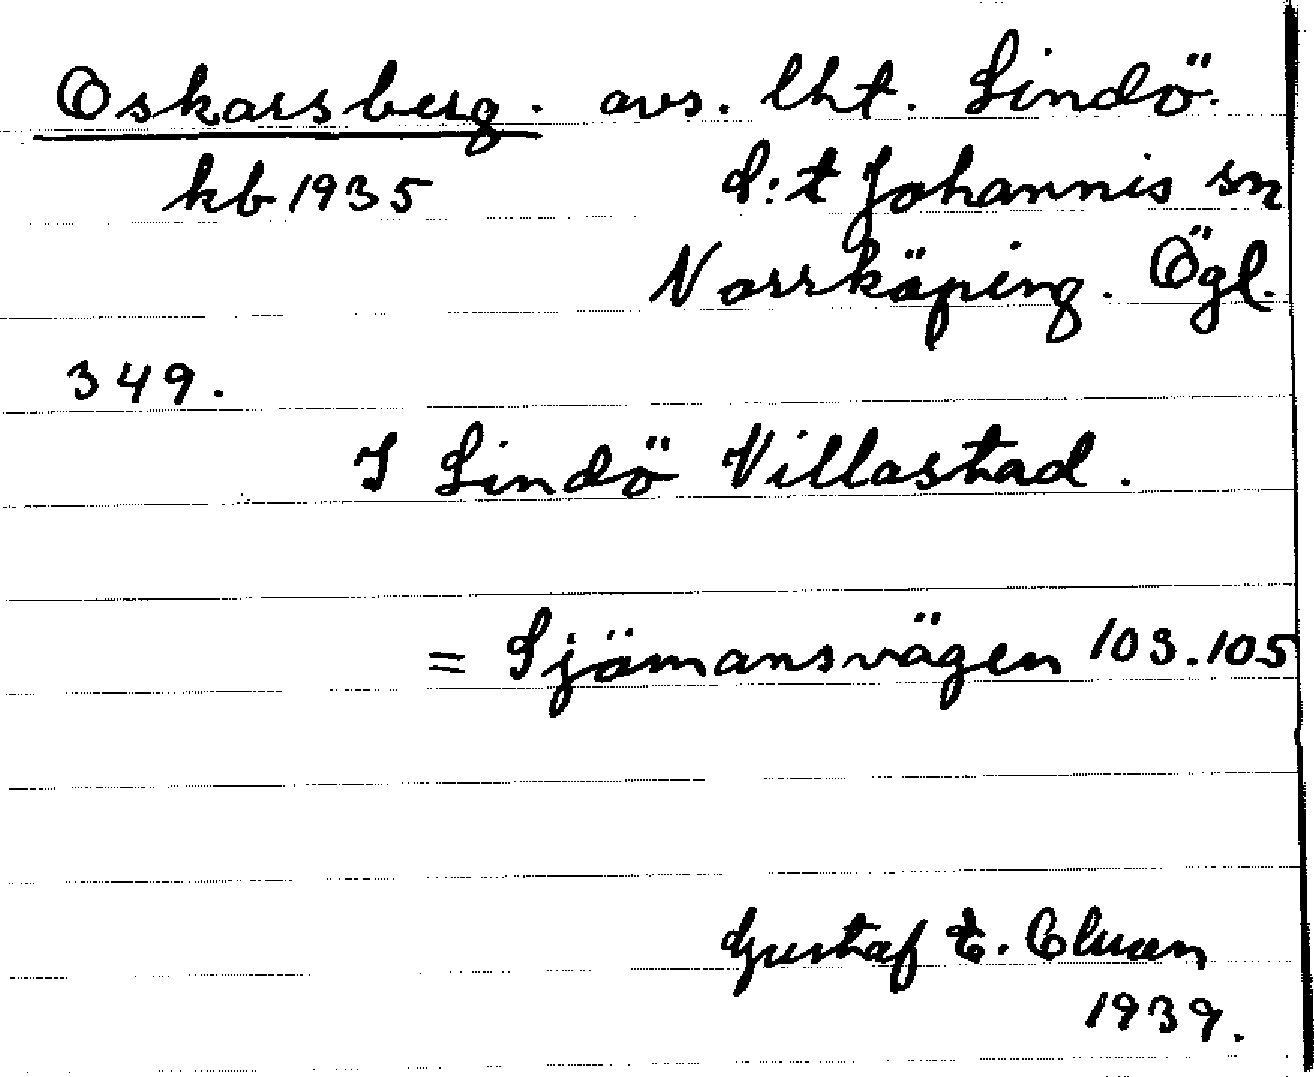 Oskarsberg. avs. lht. Lindö.
kb 1935 d:t Johannis sn
Norrköping. Ögl.
349.
I Lindö Villastad.
= Sjömansvägen 103.105
Gustaf E.
1939.